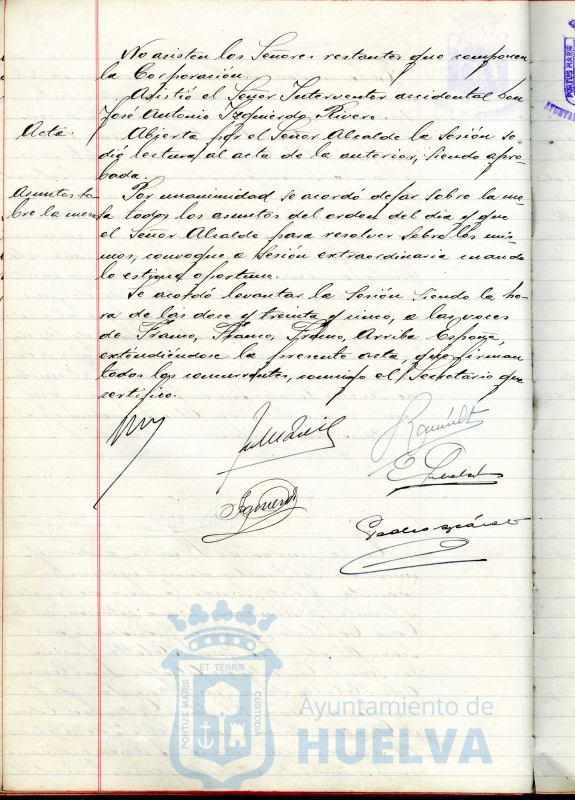 No asisten los Señores restantes que componen
la Corporación.
Asistió el Señor Interventor accidental Don
José Antonio Izquierdo Rivero.
Acta.
Abierta por el Señor Alcalde la Sesión se
dió lectura al acta de la anterior, siendo apro-
bada.
Asuntos so-
bre la mesa
Por unanimidad se acordó dejar sobre la me-
sa todos los asuntos del orden del dia y que
el Señor Alcalde para resolver sobre los mis-
mos, convoque a Sesión extraordinaria cuando
lo estime oportuno.
Se acordó levantar la Sesión siendo la ho-
ra de las doce y treinta y cinco, a las voces
de Franco, Franco, Franco, Arriba España,
extendiéndose la presente acta, que firman
todos los concurrentes, conmigo el Secretario que
certifico.
Izquierdo
PORTUS MARIS
ET TERRÆ
CUSTODIA
Ayuntamiento de
HUELVA
PORTUS MARIS